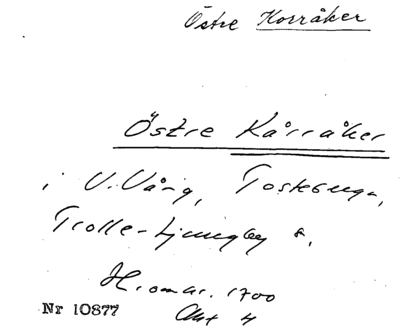 Östre Korråker
Östre Kårråker
i V. Vång, Tosteberga,
Trolle-Ljungby s.
H. omkr. 1700
Akt 4
Nr 10877